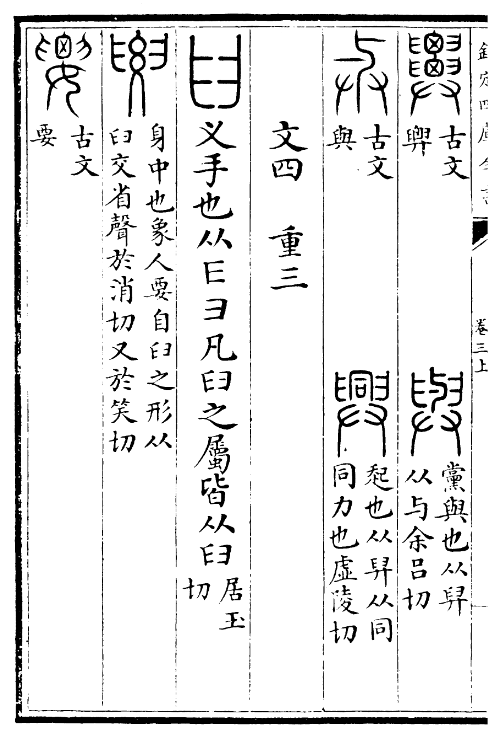 欽定四庫全書
卷三上
古文
與
黨與也从舁
从与余呂切
古文
與
興
起也从舁从同
同力也虛陵切
文四 重三
臼
叉手也从E彐凡臼之屬皆从臼
居玉
切
要
身中也象人要自臼之形从
臼交省聲於消切又於笑切
古文
要